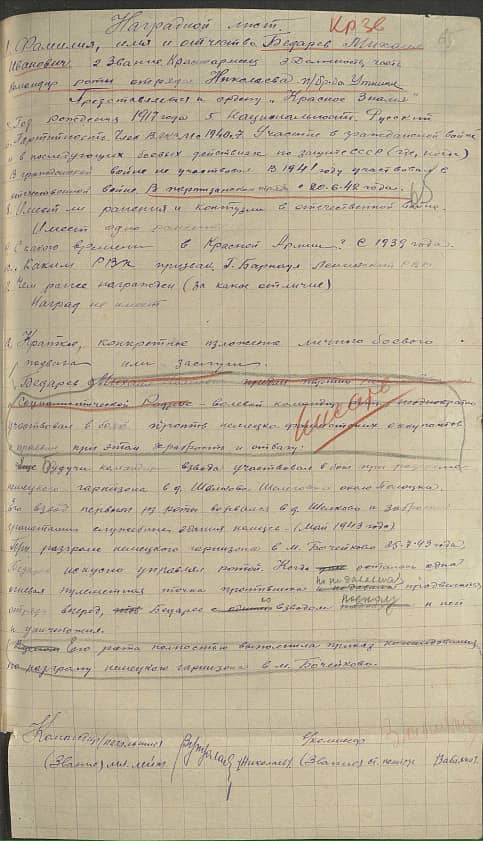 Наградной лист.
КрЗв
1. Фамилия, имя и отчество Бедарев Михаил
Иванович 2 Звание Красноармеец 3 Должность, часть
командир роты отряда Николаева п/бр-да Уткина
Представляется к ордену "Красное Знамя"
Год рождения 1917 года 5 Национальность Русский
Партийность член ВЛКСМ с 1940 г. Участие в гражданской войне
и в последующих боевых действиях по защите СССР (где, когда)
В гражданской войне не участвовал. В 1941 году участвовал в
отечественной войне. В партизанском отряде с 20.6.42 года.
8. Имеет ли ранения и контузии в отечественной войне.
Имеет одно ранение
9. С какого времени в Красной Армии? С 1939 года.
10. Каким РВК призван г. Барнаул Ленинский РВК
Чем ранее награжден (за какие отличия)
Наград не имеет
Краткое, конкретное изложение личного боевого
подвига или заслуги.
Бедарев Михаил
Социалистической Родине - волевой командир неоднократно
участвовал в боях против немецко-фашистских оккупантов
проявляя при этом храбрость и отвагу.
Будучи командиром взвода участвовал в бою при разгроме
немецкого гарнизона в д. около Полоцка.
Его взвод первым из роты ворвался в д. и забросал
гранатами служебные здания немцев. (Май 1943 года)
При разгроме немецкого гарнизона в м. Бочейково 25-7-43 года,
Бедарев искусно управлял ротой. Когда осталась одна
не подавлена
огневая пулеметная точка противника продвижения
отряда вперед, Бедарев с взводом к ней
и уничтожил.
Его рота полностью выполнила приказ командования
по разгрому немецкого гарнизона в м. Бочейково.
Командир/начальник) комиссар
(Звание) мл. лейт. /Николаев/ (Звание) ст. политр.